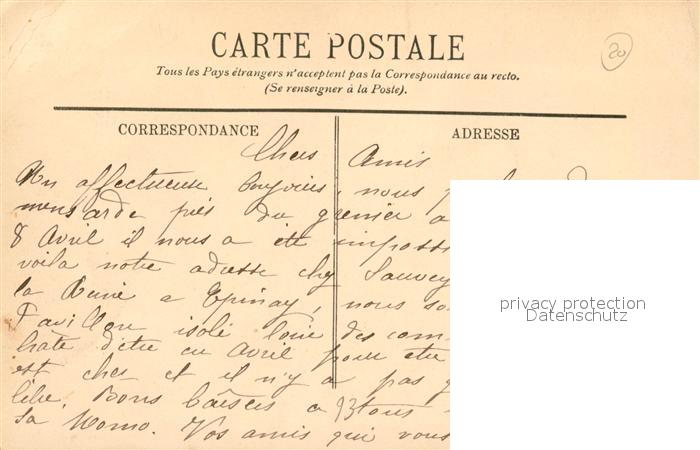 20
CARTE POSTALE
Tous les Pays étrangers n'acceptent pas la Correspondance au recto.
(Se renseigner à la Poste).
CORRESPONDANCE
ADRESSE
Chers Amis
Un affectueux bonjour, nous
mensarde près du grenier a
8 Avril il nous a été imposs
voila notre adresse chez Sauvey
la a Epinay, nous so
Pavillon isolé loin des com
hate d'etre en Avril pour etre
est cher et il n'y a pas
libre. Bons baisers a tous
la Momo. Vos amis qui vous
privacy protection
Datenschutz